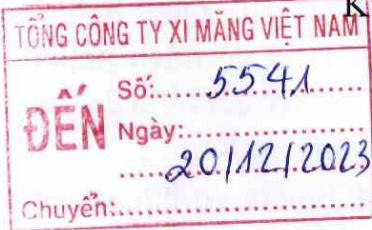 K
TỔNG CÔNG TY XI MĂNG VIỆT NAM
ĐẾN
Số:.....5541.........
Ngày:....................
.......20/12/2023
Chuyển:................................